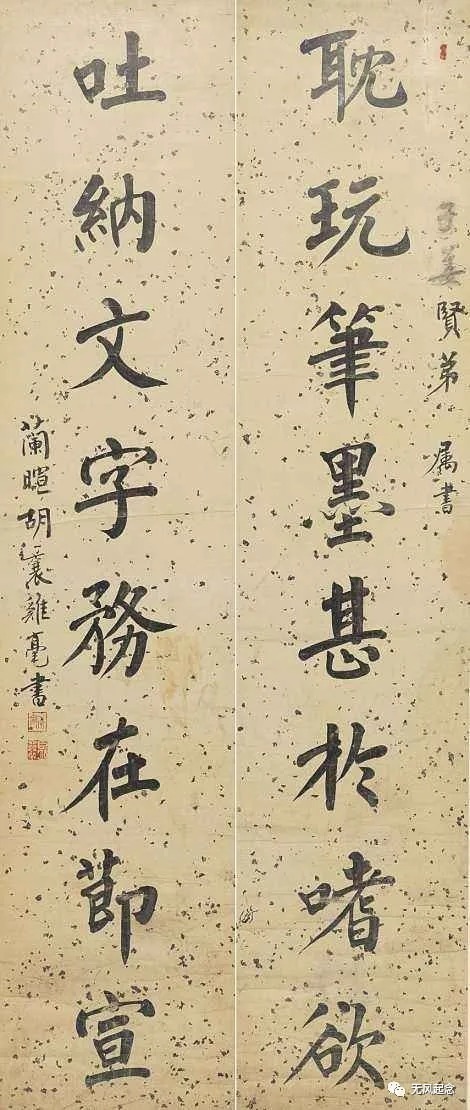 賢弟属書
耽玩筆墨甚於嗜欲
吐納文字務在節宣
蘭暄胡 毫書
无风起念